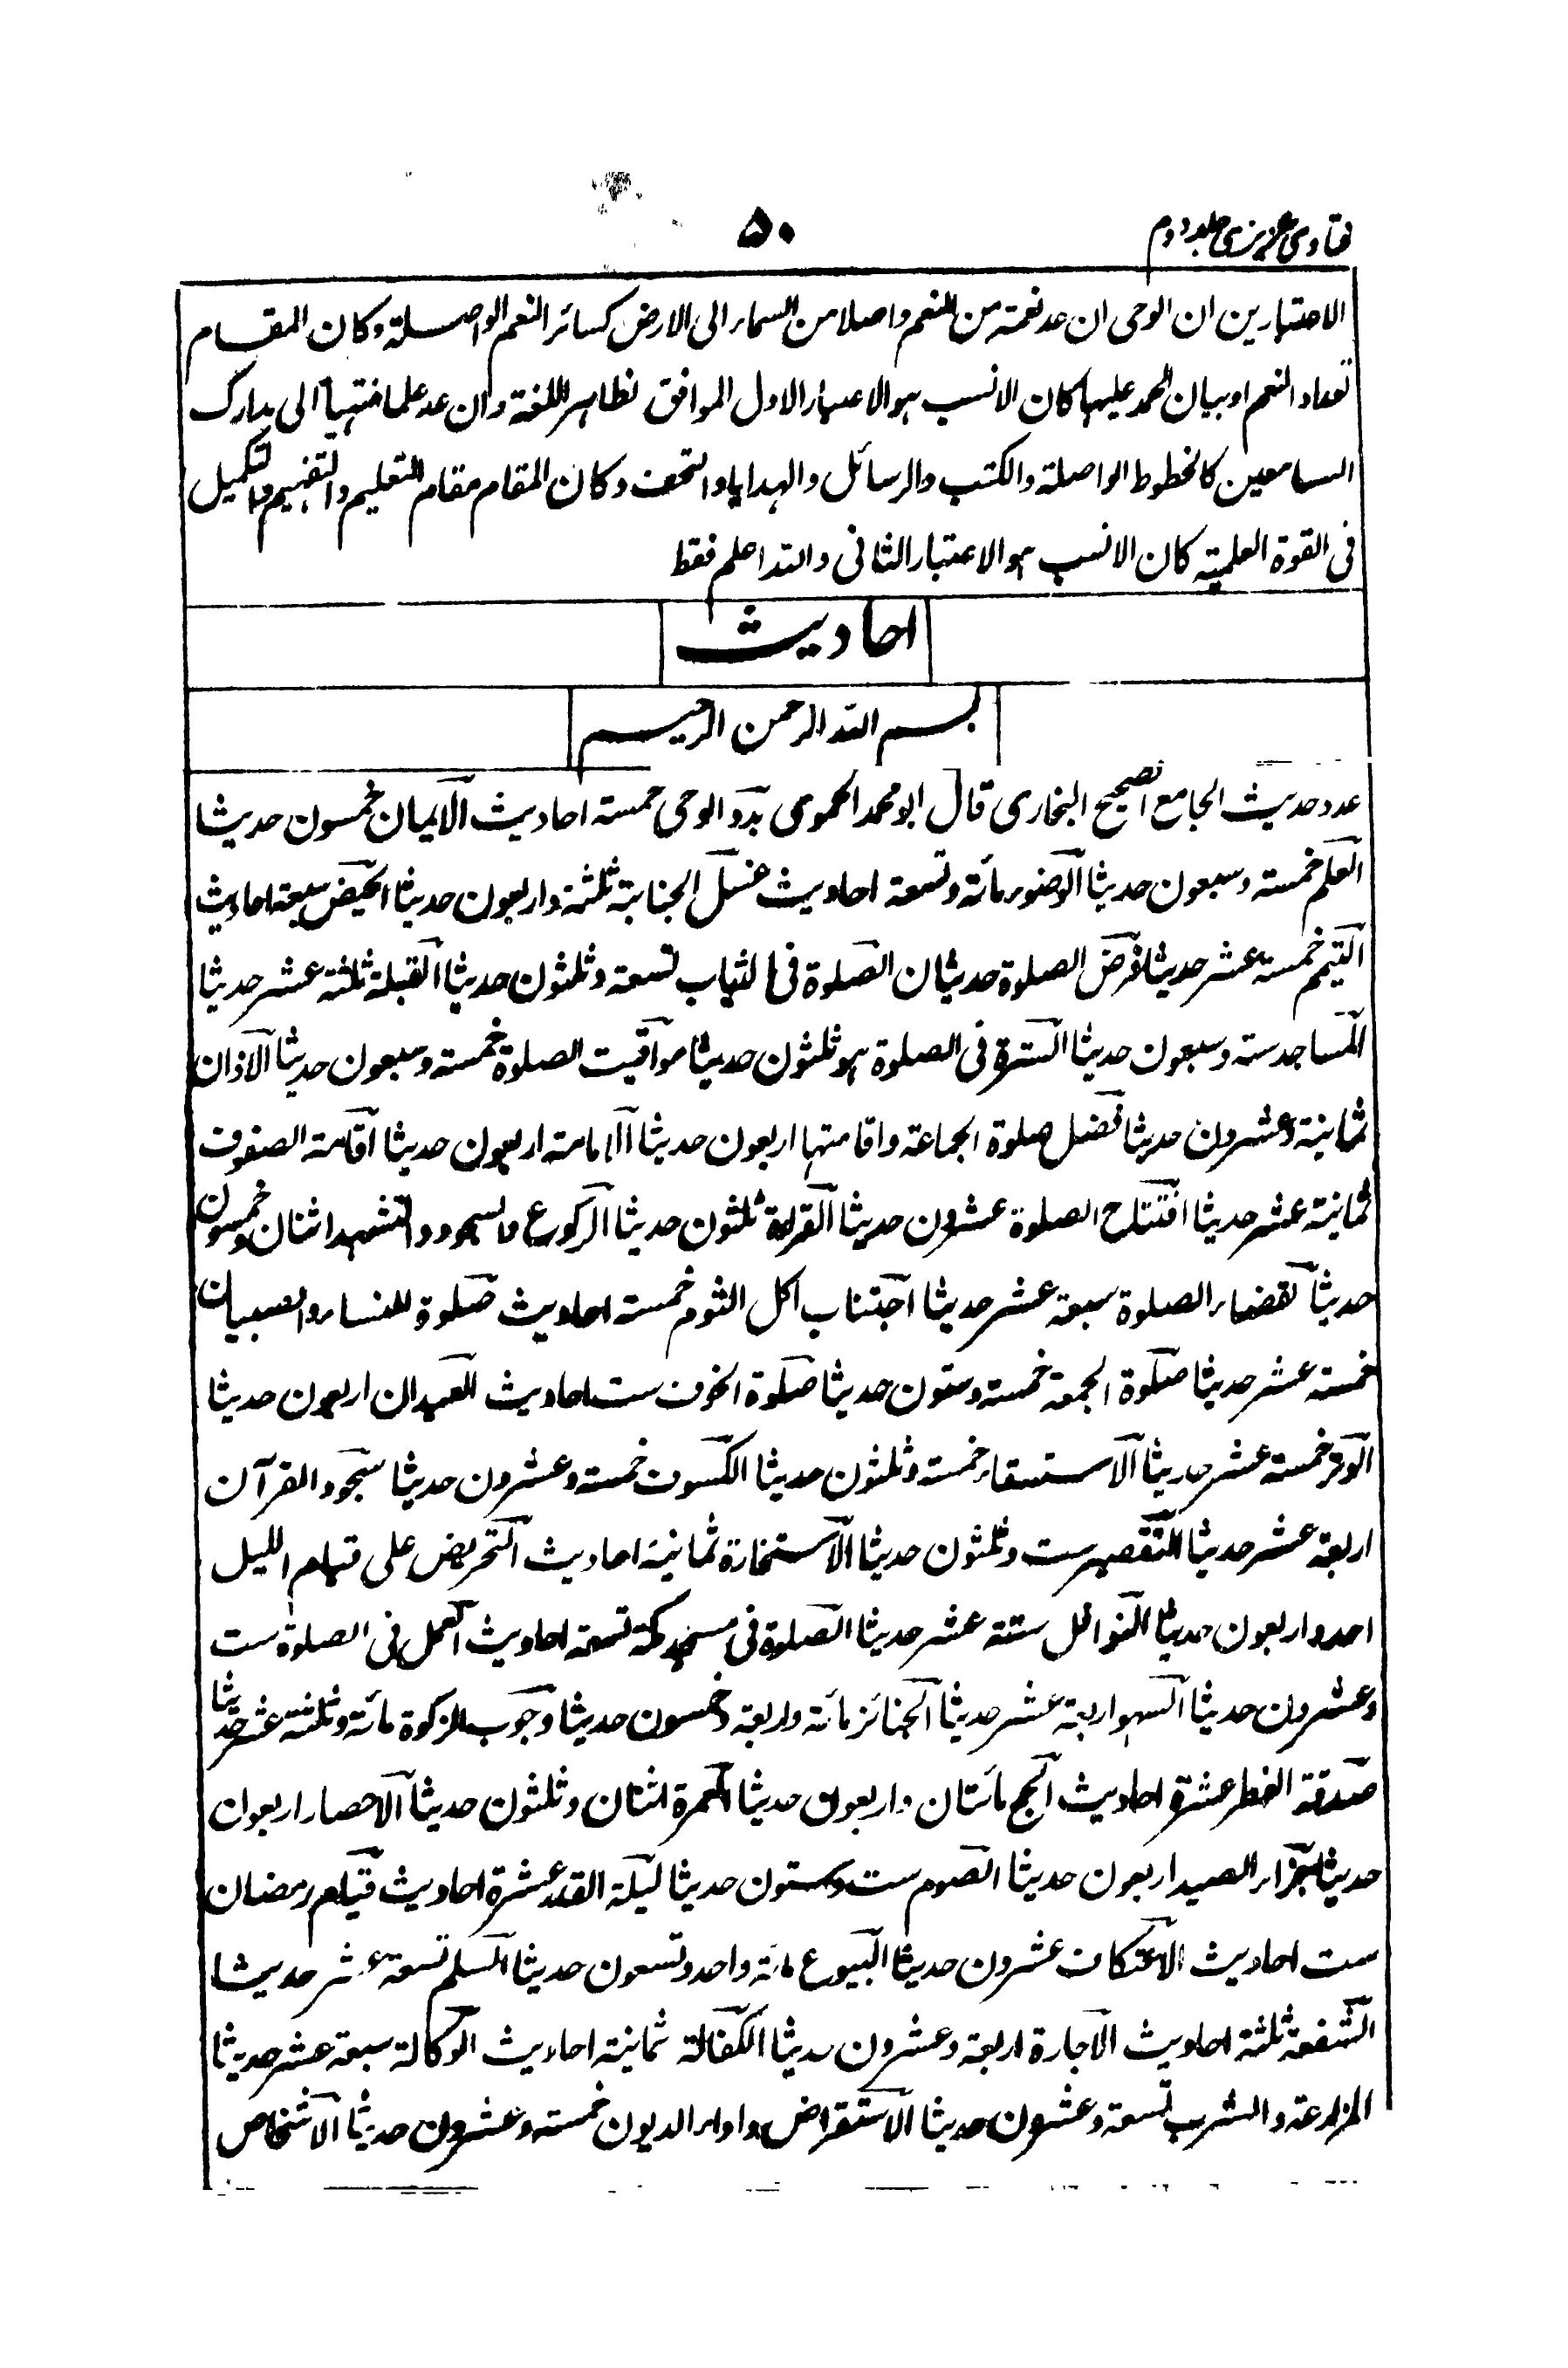 فتاوی عزیزی جلد دوم
۵۰
الاعتبارین ان الوحی ان عد نعمۃ من النعم واصلا من السماء الی الارض کسائر النعم الواصلۃ وکان المقام
تعداد النعم او بیان الحمد علیہا کان الانسب ہو الاعتبار الاول الموافق لظاہر اللغۃ وان عد علما منتہیا الی مدارک
السامعین کالخطوط الواصلۃ والکتب والرسائل والہدایا والتحف وکان المقام مقام التعلیم والتفہیم والتکمیل
فی القوۃ العلمیۃ کان الانسب ہو الاعتبار الثانی واللہ اعلم فقط
احادیث
بسم اللہ الرحمن الرحیم
عدد حدیث الجامع الصحیح البخاری قال ابو محمد الحموی بدو الوحی خمسۃ احادیث الایمان خمسون حدیثا
العلم خمسۃ وسبعون حدیثا الوضوء مائۃ وتسعۃ احادیث غسل الجنابۃ ثلثۃ واربعون حدیثا الحیض سبعۃ احادیث
التیمم خمسۃ عشر حدیثا فرض الصلوۃ حدیثان الصلوۃ فی الثیاب تسعۃ وثلثون حدیثا القبلۃ ثلثۃ عشر حدیثا
المساجد ستۃ وسبعون حدیثا السترۃ فی الصلوۃ ہو ثلثون حدیثا مواقیت الصلوۃ خمسۃ وسبعون حدیثا الاذان
ثمانیۃ وعشرون حدیثا فضل صلوۃ الجماعۃ واقامتہا اربعون حدیثا الامامۃ اربعون حدیثا اقامۃ الصفوف
ثمانیۃ عشر حدیثا افتتاح الصلوۃ عشرون حدیثا القراءۃ ثلثون حدیثا الرکوع والسجود والتشہد اثنان وخمسون
حدیثا قضاء الصلوۃ سبعۃ عشر حدیثا اجتناب اکل الثوم خمسۃ احادیث صلوۃ النساء والصبیان
خمسۃ عشر حدیثا صلوۃ الجمعۃ خمسۃ وستون حدیثا صلوۃ الخوف ست احادیث العیدان اربعون حدیثا
الوتر خمسۃ عشر حدیثا الاستسقاء خمسۃ وثلثون حدیثا الکسوف خمسۃ وعشرون حدیثا سجود القرآن
اربعۃ عشر حدیثا التقصیر ست وثلثون حدیثا الاستخارۃ ثمانیۃ احادیث التحریض علی قیام اللیل
احد واربعون حدیثا النوافل ستۃ عشر حدیثا الصلوۃ فی مسجد مکۃ تسعۃ احادیث العمل فی الصلوۃ ست
وعشرون حدیثا السہو اربعۃ عشر حدیثا الجنائز مائۃ واربعۃ وخمسون حدیثا وجوب الزکوۃ مائۃ وثلثۃ عشر حدیثا
صدقۃ الفطر عشرۃ احادیث الحج مائتان واربعون حدیثا العمرۃ اثنان وثلثون حدیثا الاحصار اربعون
حدیثا جزاء الصید اربعون حدیثا الصوم ست وستون حدیثا لیلۃ القدر عشرۃ احادیث قیام رمضان
ست احادیث الاعتکاف عشرون حدیثا البیوع مائۃ واحد وتسعون حدیثا السلم تسعۃ عشر حدیثا
الشفعۃ ثلثۃ احادیث الاجارۃ اربعۃ وعشرون حدیثا الکفالۃ ثمانیۃ احادیث الوکالۃ سبعۃ عشر حدیثا
المزارعۃ والشرب تسعۃ وعشرون حدیثا الاستقراض واداء الدیون خمسۃ وعشرون حدیثا الاشخاص